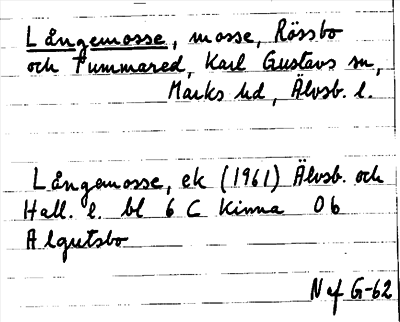 Långemosse, mosse, Rössbo
och Pummared, Karl Gustavs sn,
Marks hd, Älvsb. l.
Långemosse, ek (1961) Älvsb. och
Hall. l. bl 6 C Kinna 0 b
Algutsbo
N ef G-62